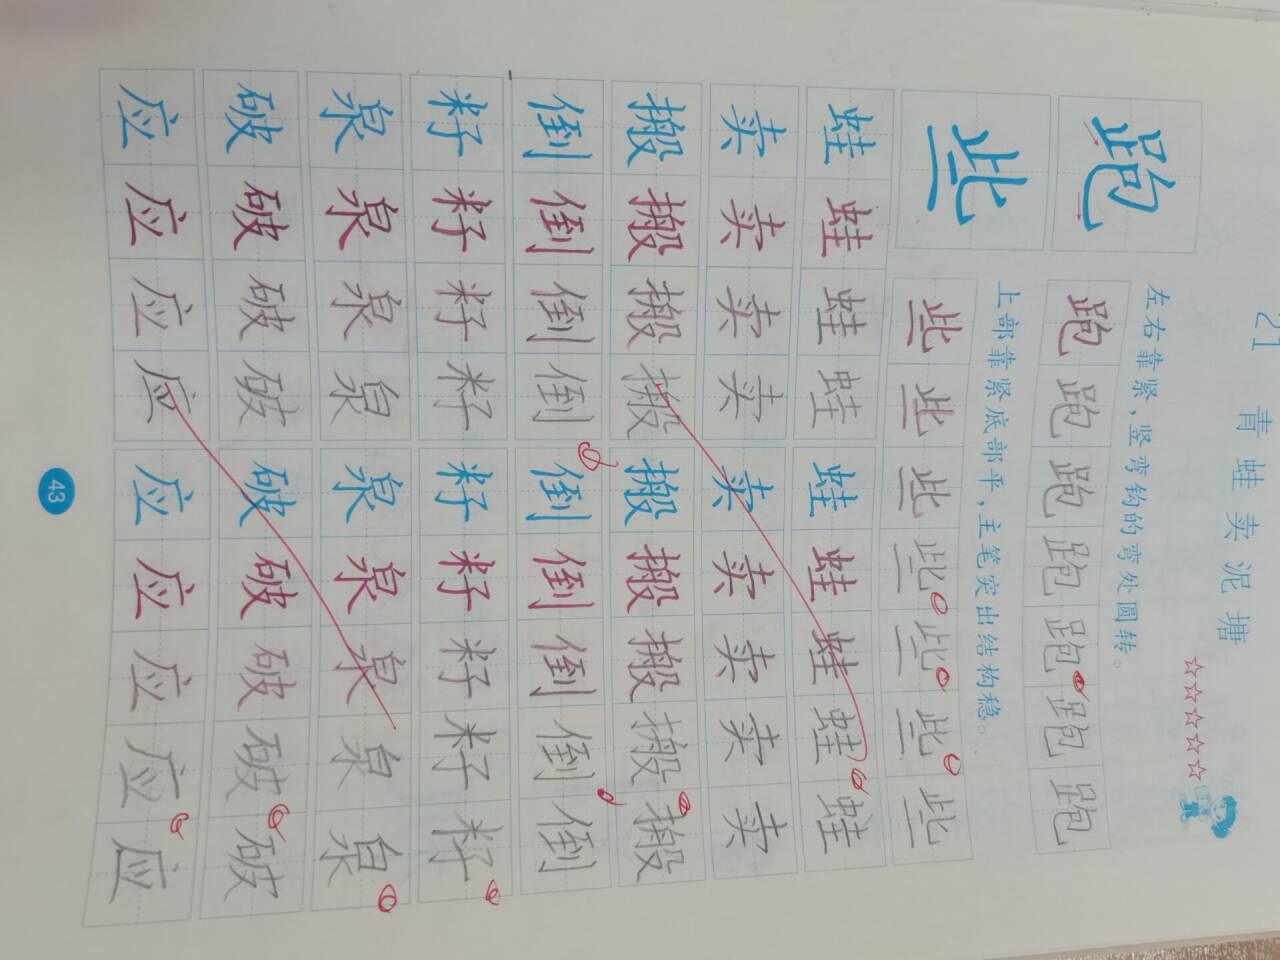 21 青蛙卖泥塘
☆☆☆☆☆
左右靠紧,竖弯钩的弯处圆转。
跑 跑 跑 跑 跑 跑 跑 跑
上部靠紧底部平,主笔突出结构稳。
些 些 些 些 些 些 些 些
蛙 蛙 蛙 蛙 蛙 蛙 蛙 蛙 蛙
卖 卖 卖 卖 卖 卖 卖 卖 卖
搬 搬 搬 搬 搬 搬 搬 搬 搬
倒 倒 倒 倒 倒 倒 倒 倒 倒
籽 籽 籽 籽 籽 籽 籽 籽 籽
泉 泉 泉 泉 泉 泉 泉 泉 泉
破 破 破 破 破 破 破 破 破
应 应 应 应 应 应 应 应 应
43